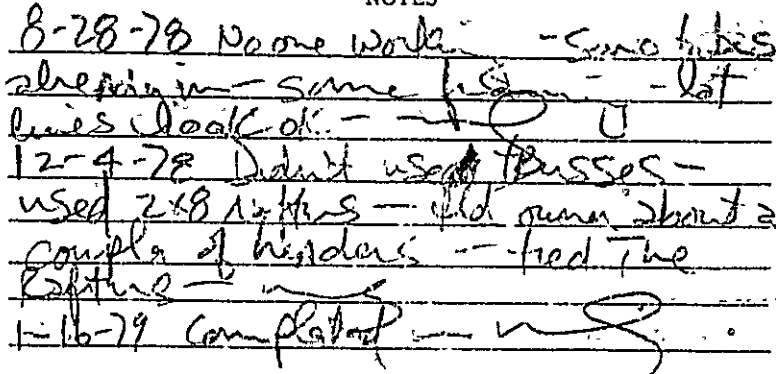 NOTES
8-28-78 No one working - Sono tubes
already in - same - lot
lines look ok -
12-4-78 Didn't use Trusses -
used 2x8 rafters - told owner about a
couple of headers - tied The
Rafters -
1-16-79 Completed -